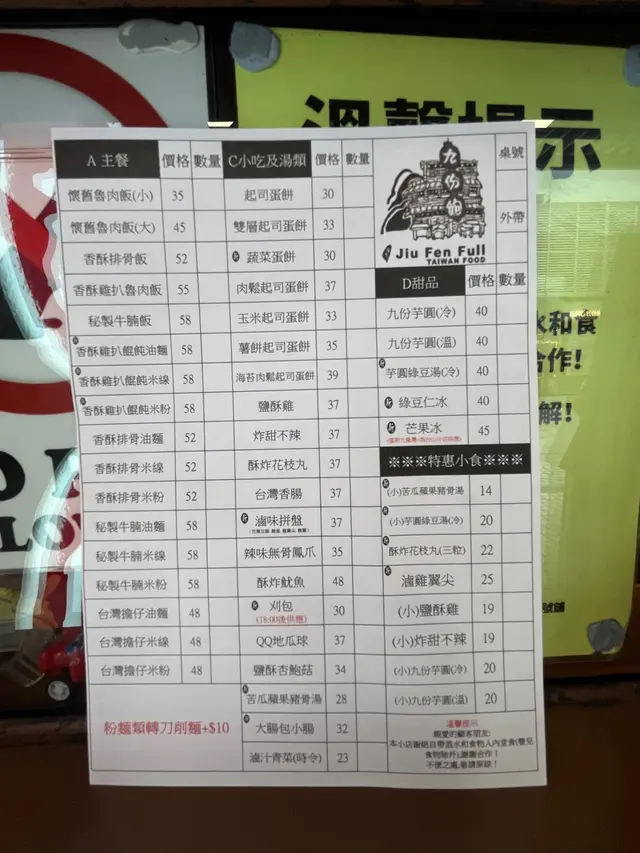 溫馨提示
A 主餐 價格 數量
懷舊魯肉飯(小) 35
懷舊魯肉飯(大) 45
香酥排骨飯 52
香酥雞扒魯肉飯 55
秘製牛腩飯 58
香酥雞扒餛飩油麵 58
香酥雞扒餛飩米線 58
香酥雞扒餛飩米粉 58
香酥排骨油麵 52
香酥排骨米線 52
香酥排骨米粉 52
秘製牛腩油麵 58
秘製牛腩米線 58
秘製牛腩米粉 58
台灣擔仔油麵 48
台灣擔仔米線 48
台灣擔仔米粉 48
粉麵類轉刀削麵+$10
C小吃及湯類 價格 數量
起司蛋餅 30
雙層起司蛋餅 33
蔬菜蛋餅 30
肉鬆起司蛋餅 37
玉米起司蛋餅 33
薯餅起司蛋餅 35
海苔肉鬆起司蛋餅 39
鹽酥雞 37
炸甜不辣 37
酥炸花枝丸 37
台灣香腸 37
滷味拼盤 37
辣味無骨鳳爪 35
酥炸魷魚 48
刈包 30
(18:00後供應)
QQ地瓜球 37
鹽酥杏鮑菇 34
苦瓜蘋果豬骨湯 28
大腸包小腸 32
滷汁青菜(時令) 23
九份飽
Jiu Fen Full
TAIWAN FOOD
桌號
外帶
D甜品 價格 數量
九份芋圓(冷) 40
九份芋圓(溫) 40
芋圓綠豆湯(冷) 40
綠豆仁冰 40
芒果冰 45
※※※特惠小食※※※
(小)苦瓜蘋果豬骨湯 14
(小)芋圓綠豆湯(冷) 20
酥炸花枝丸(三粒) 22
滷雞翼尖 25
(小)鹽酥雞 19
(小)炸甜不辣 19
(小)九份芋圓(冷) 20
(小)九份芋圓(溫) 20
溫馨提示
親愛的顧客朋友:
本小店謝絕自帶酒水和食物入內堂食(嬰兒
食物除外),謝謝合作！
不便之處,敬請原諒！
水和食
合作!
解!